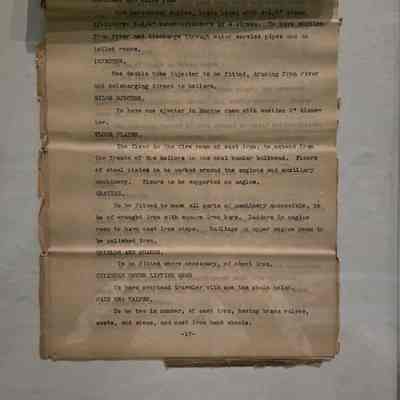 from river and discharge through water service pipes and to
boiler rooms.
INJECTOR.
One double tube injector to be fitted, drawing from river
and discharging direct to boilers.
BILGE EJECTOR.
To have one ejector in Engine room with suction 2" diame-
ter.
FLOOR PLATES.
The floor in the fire room of cast iron, to extend from
the fronts of the boilers to the coal bunker bulkhead. Floors
of steel plates to be worked around the engines and auxiliary
machinery. Floors to be supported on angles.
GRATING.
To be fitted to make all parts of machinery accessible, to
be of wrought iron with square iron bars. Ladders in engine
room to have cast iron steps. Railings in upper engine room to
be polished iron.
SHIELDS AND GUARDS.
To be fitted where necessary, of sheet iron.
CYLINDER COVER LIFTING GEAR
To have overhead traveler with one ton chain hoist.
To be two in number, of cast iron, having brass valves,
seats, and stems, and cast iron hand wheels.
-17-